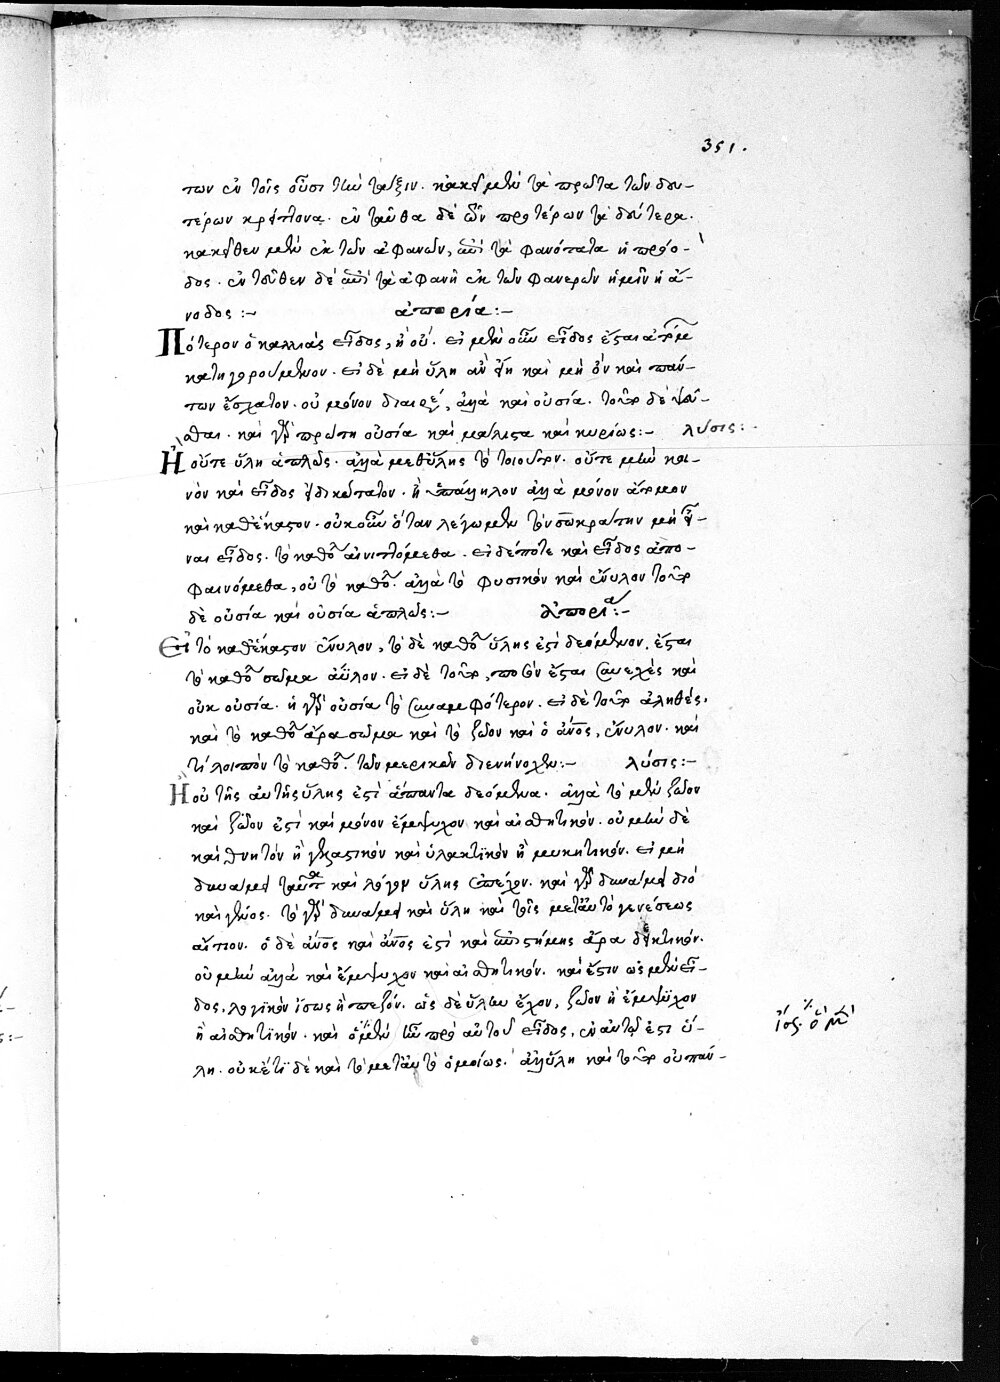 351.
των ἐν τοῖς οὖσι τὴν τάξιν. κἀκεῖ μὲν τὰ πρῶτα τῶν δευ-
τέρων κρείττονα. ἐνταῦθα δὲ τῶν προτέρων τὰ δεύτερα.
κἀκεῖθεν μὲν ἐκ τῶν ἀφανῶν, ἐπὶ τὰ φανότατα ἡ πρόο-
δος. ἐντεῦθεν δὲ ἐπὶ τὰ ἀφανῆ ἐκ τῶν φανερῶν ἡμῖν ἡ ἄ-
νοδος :~ ἀπορία :~
Πότερον ὁ καλλίας εἶδος, ἢ οὔ. εἰ μὲν οὖν εἶδος ἔσται ἄτομον
κατηγορούμενον. εἰ δὲ μὴ ὕλη ἂν εἴη καὶ μὴ ὂν καὶ πάν-
των ἔσχατον. οὐ μόνον διαιρεῖ, ἀλλὰ καὶ οὐσία. τοῦτο δὲ ψεύ-
δεται. καὶ γὰρ πρώτη οὐσία καὶ μάλιστα καὶ κυρίως :~ λύσις :
Ἢ οὔτε ὕλη ἁπλῶς. ἀλλὰ μεθ' ὕλης τὸ τοιοῦτον. οὔτε μὴν κοι-
νὸν καὶ εἶδος εἰδικώτατον. ἢ ὑπάλληλον ἀλλὰ μόνον ἄτομον
καὶ καθέκαστον. οὐκοῦν ὅταν λέγωμεν τὸν σωκράτην μὴ εἶ-
ναι εἶδος. τὸ καθόλου αἰνιττόμεθα. εἰ δέ ποτε καὶ εἶδος ἀπο-
φαινόμεθα, οὐ τὸ καθόλου. ἀλλὰ τὸ φυσικὸν καὶ ἔνυλον τοῦτο
δὲ οὐσία καὶ οὐσία ἁπλῶς :~ ἀπορία :~
Εἰ τὸ καθέκαστον ἔνυλον, τὸ δὲ καθόλου ὕλης ἐστὶ δεόμενον. ἔσται
τὸ καθόλου σῶμα ἄϋλον. εἰ δὲ τοῦτο, ποσὸν ἔσται συνεχὲς καὶ
οὐκ οὐσία. ἡ γὰρ οὐσία τὸ συναμφότερον. εἰ δὲ τοῦτο ἀληθές,
καὶ τὸ καθόλου ἄρα σῶμα καὶ τὸ ζῶον καὶ ὁ ἄνος, ἔνυλον. καὶ
τί λοιπὸν τὸ καθόλου τῶν μερικῶν διενήνοχεν :~ λύσις :~
Ἢ οὐ τῆς αὐτῆς ὕλης ἐστὶ ἅπαντα δεόμενα. ἀλλὰ τὸ μὲν ζῶον
καὶ ζῶον ἐστὶ καὶ μόνον ἔμψυχον καὶ αἰσθητικόν. οὐ μὴν δὲ
καὶ θνητὸν ἢ γελαστικὸν καὶ ὑλακτικὸν ἢ μυκητικόν. εἰ μὴ
δυνάμει ταῦτα καὶ λόγον ὕλης ἐπέχον. καὶ γὰρ δυνάμει διὸ
καὶ γένος. τὸ γὰρ δυνάμει καὶ ὕλη καὶ τῆς μετ' αὐτὸ γενέσεως
αἴτιον. ὁ δὲ ἄνος καὶ ἄνος ἐστὶ καὶ ἐπιστήμης ἄρα δεκτικόν.
οὐ μὴν ἀλλὰ καὶ ἔμψυχον καὶ αἰσθητικόν. καὶ ἔστιν ὡς μὲν εἶ-
δος, λογικὸν ἴσως ἢ πεζόν. ὡς δὲ ὕλην ἔχον, ζῶον ἢ ἔμψυχον
ἢ αἰσθητικόν. καὶ ὃ μὲν ἦν πρὸ αὐτοῦ εἶδος, ἐν αὐτῷ ἐστὶ ὕ-
λη. οὐκέτι δὲ καὶ τὸ μετ' αὐτὸ ὁμοίως. ἀλλ' ὕλη καὶ τοῦτο οὐ πάν-